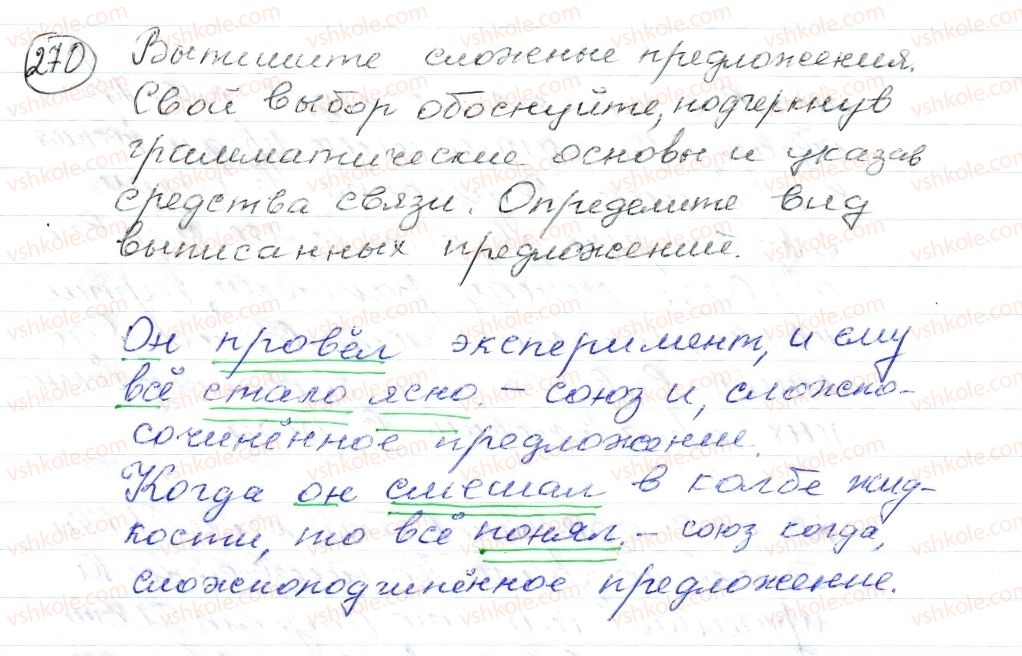 270 Выпишите сложеные предложения.
Свой выбор обоснуйте, подчеркнув
грамматические основы и указав
средства связи. Определите вид
выписанных предложений.
Он провёл эксперимент, и ему
всё стало ясно. – союз и, сложно-
сочинённое предложение.
Когда он смешал в колбе жид-
кости, то всё понял. – союз когда,
сложноподчинённое предложение.